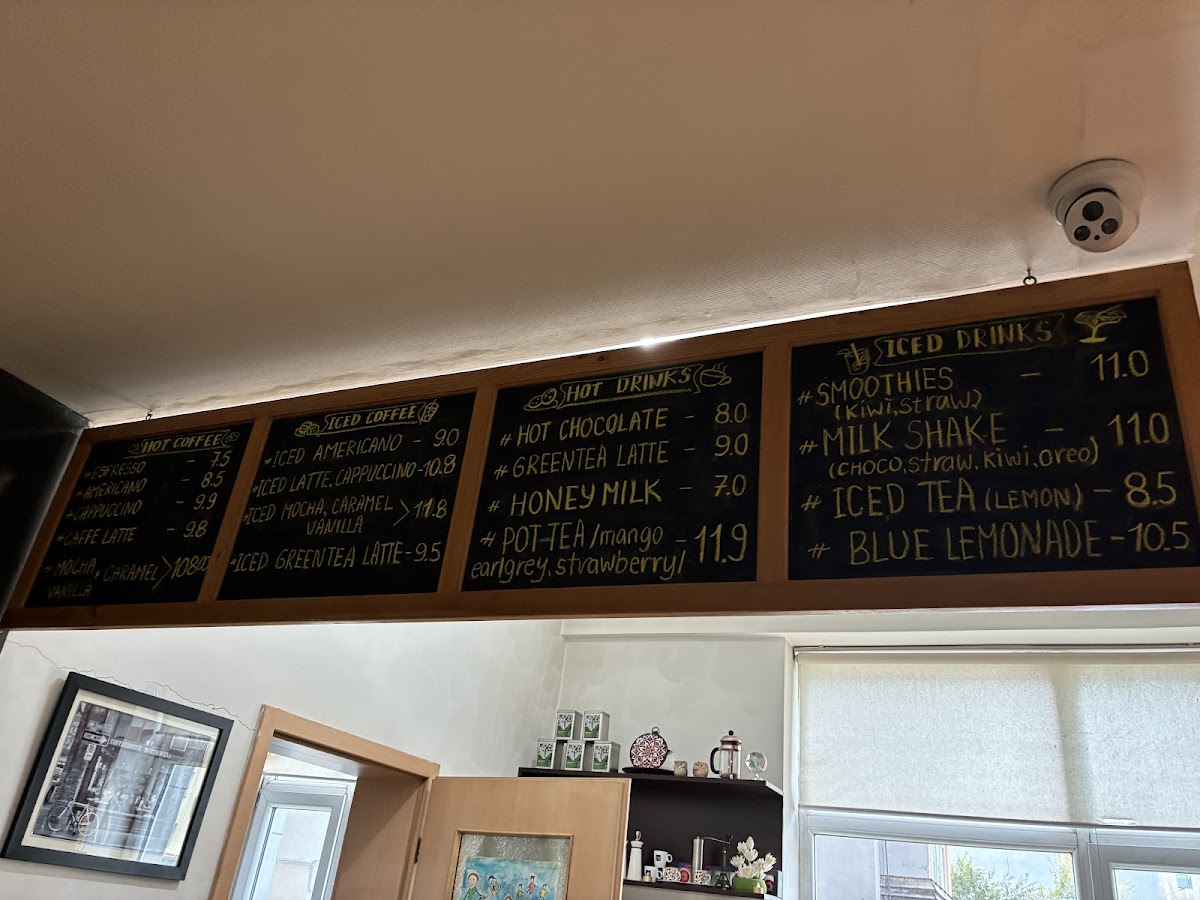 HOT COFFEE
*ESPRESSO - 7.5
*AMERICANO - 8.5
*CAPPUCCINO - 9.9
*CAFFE LATTE - 9.8
*MOCHA, CARAMEL >10800
VANILLA
ICED COFFEE
*ICED AMERICANO - 9.0
*ICED LATTE, CAPPUCCINO - 10.8
*ICED MOCHA, CARAMEL >11.8
VANILLA
*ICED GREENTEA LATTE - 9.5
HOT DRINKS
# HOT CHOCOLATE - 8.0
# GREENTEA LATTE - 9.0
# HONEY MILK - 7.0
# POT TEA /mango - 11.9
earlgrey, strawberry/
ICED DRINKS
# SMOOTHIES - 11.0
(kiwi, straw)
# MILK SHAKE - 11.0
(CHOCO, straw, kiwi, oreo)
# ICED TEA (LEMON) - 8.5
# BLUE LEMONADE - 10.5